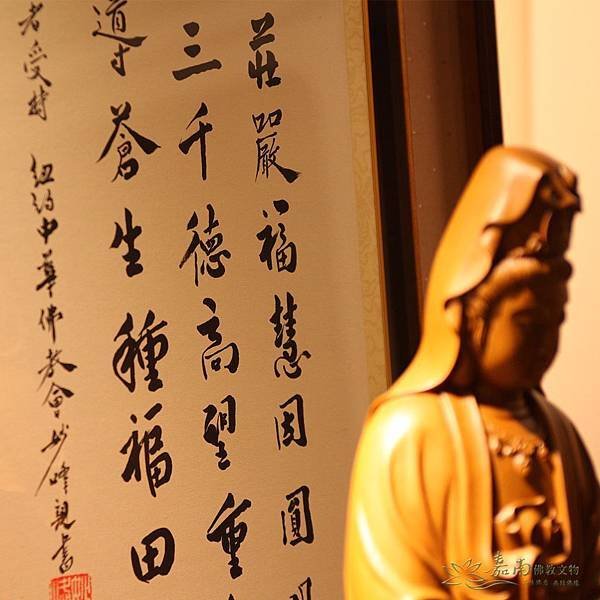 莊嚴福慧因圓
三千德高望重
導蒼生種福田
者受
紐約中華佛教會妙峰親書
嘉南佛教文物